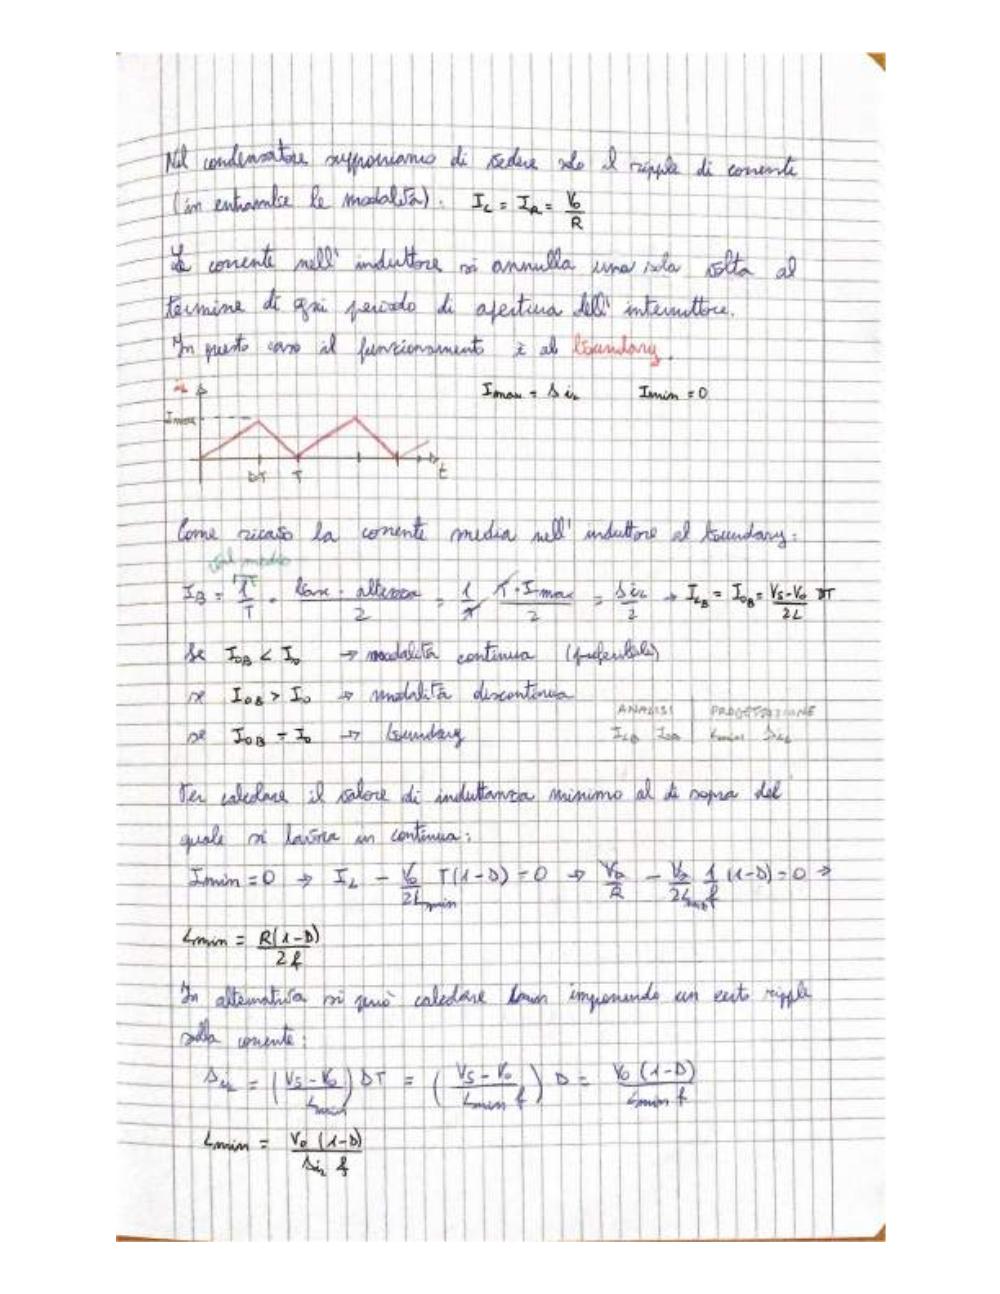 Nel condensatore supponiamo di vedere solo il ripple di corrente
(in entrambe le modalità). I_L = I_R = V_0/R
La corrente nell'induttore si annulla una sola volta al
termine di ogni periodo di apertura dell'interruttore.
In questo caso il funzionamento è al boundary.
i_L I_max = Δi_L I_min = 0
I_max
DT T t
Come ricavo la corrente media nell'induttore al boundary:
val medio
I_B = 1/T · base · altezza / 2 = 1/T · T · I_max / 2 = Δi_L/2 → I_LB = I_OB = (V_S - V_0)/2L DT
Se I_OB < I_0 → modalità continua (preferibile)
se I_OB > I_0 → modalità discontinua
se I_OB = I_0 → boundary
ANALISI | PROGETTAZIONE
I_LB I_OB | L_min Δi_L
Per calcolare il valore di induttanza minimo al di sopra del
quale si lavora in continua:
I_min = 0 → I_L - V_0/2L_min T(1-D) = 0 → V_0/R - V_0/2L_min 1/f (1-D) = 0 →
L_min = R(1-D)/2f
In alternativa si può calcolare L_min imponendo un certo ripple
sulla corrente:
Δi_L = ((V_S - V_0)/L_min) DT = ((V_S - V_0)/(L_min f)) D = V_0 (1-D)/(L_min f)
L_min = V_0 (1-D)/(Δi_L f)